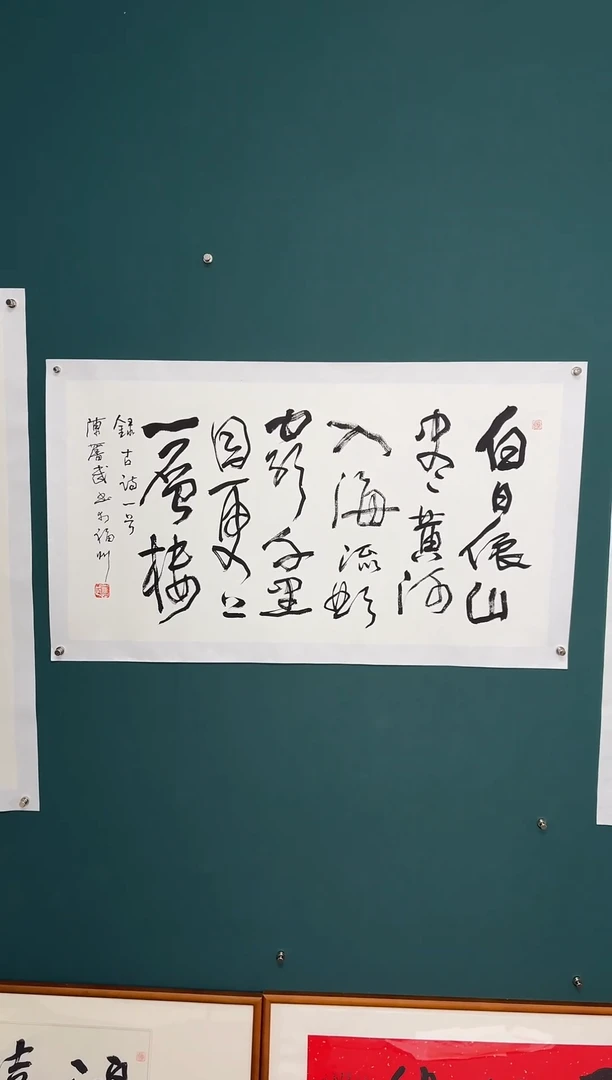 白日依山
盡黄河
入海流欲
窮千里
目更上
一層樓
録古詩一首
陳 武书於福州